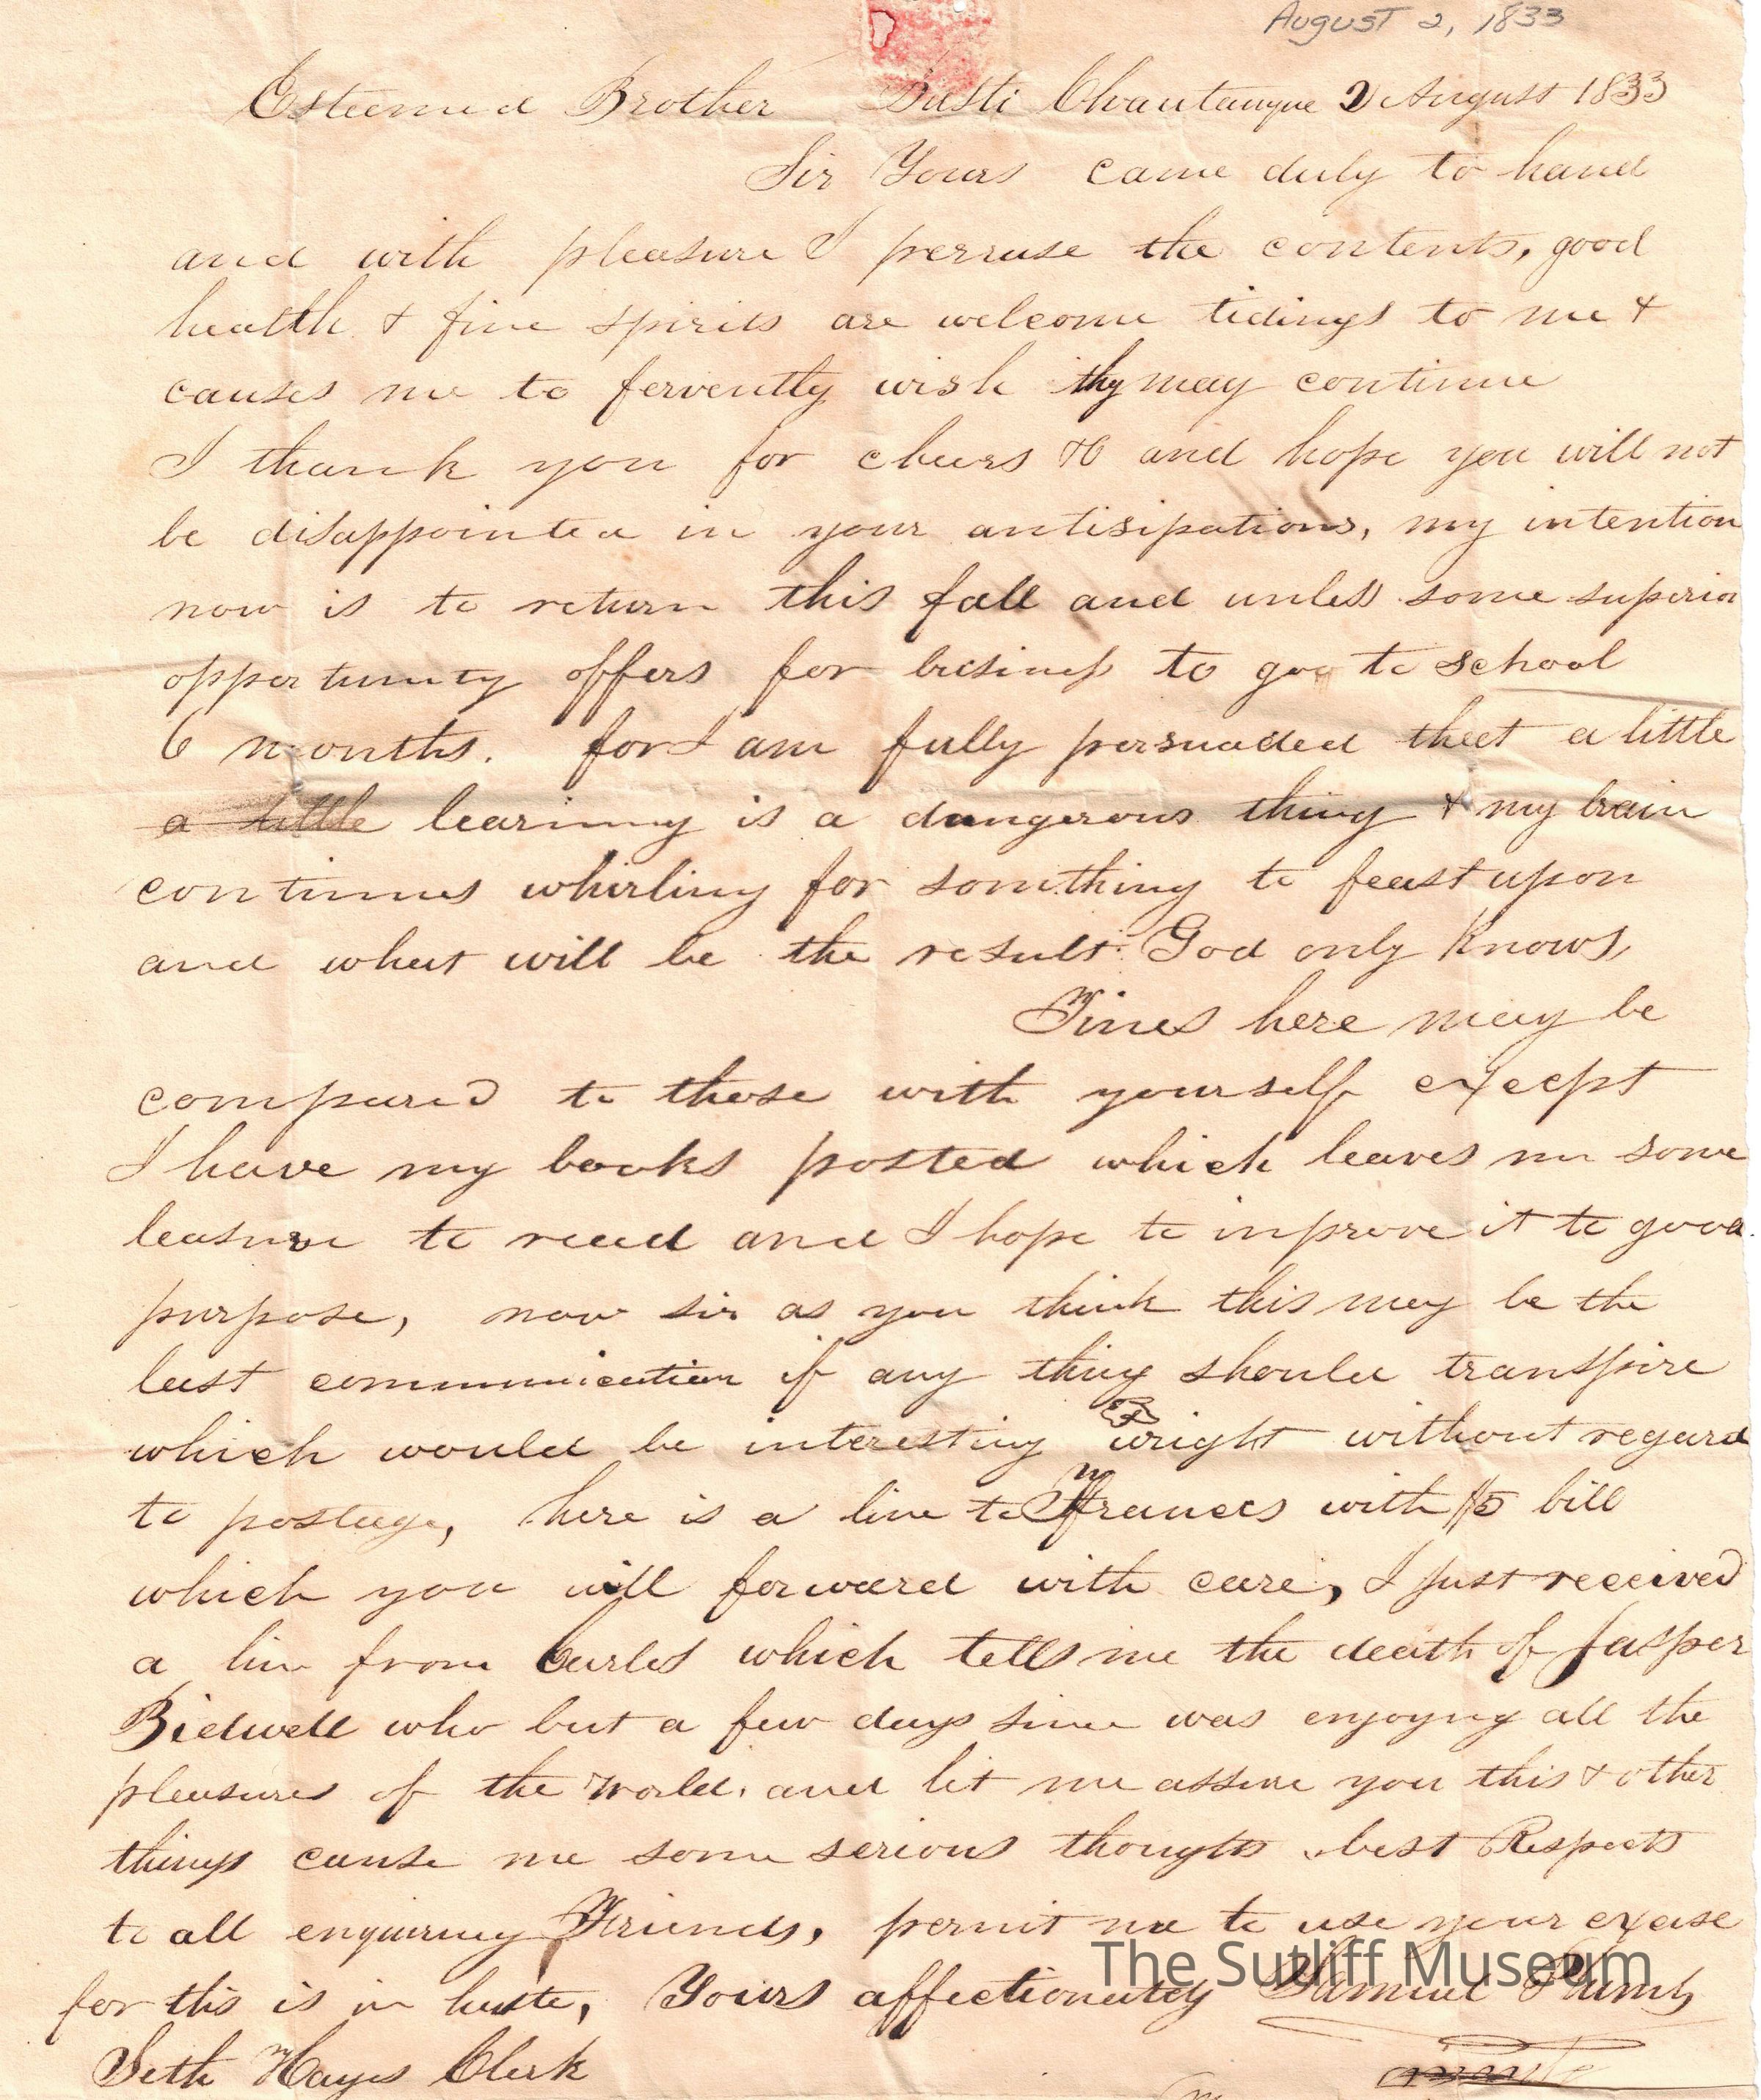 August 2, 1833
Esteemed Brother Busti Chautauque 2 August 1833
Sir Yours came duly to hand
and with pleasure I perruse the contents, good
health & fine spirits are welcome tidings to me &
causes me to fervently wish thy may continue
I thank you for cheers &c and hope you will not
be disappointed in your antisipations, my intention
now is to return this fall and unless some superior
opportunity offers for business to go to school
6 months. for I am fully persuaded that a little
a little learning is a dangerous thing & my brain
continues whirling for something to feast upon
and what will be the result God only knows,
Times here may be
compared to those with yourself except
I have my books posted which leaves me some
leasure to read and I hope to inprove it to good
purpose, now sir as you think this may be the
last communication if any thing should transpire
which would be interesting wright without regard
to postage, here is a line to Frances with $5 bill
which you will forward with care, I just received
a line from Carlos which tells me the death of Jasper
Bidwell who but a few days since was enjoying all the
pleasures of the world. and let me assure you this & other
things cause me some serious thoughts best Respects
to all enquiring Friends, permit me to use your excuse
for this is in haste, Yours affectionately Samuel Plumb
The Sutliff Museum
Seth Hayes Clerk